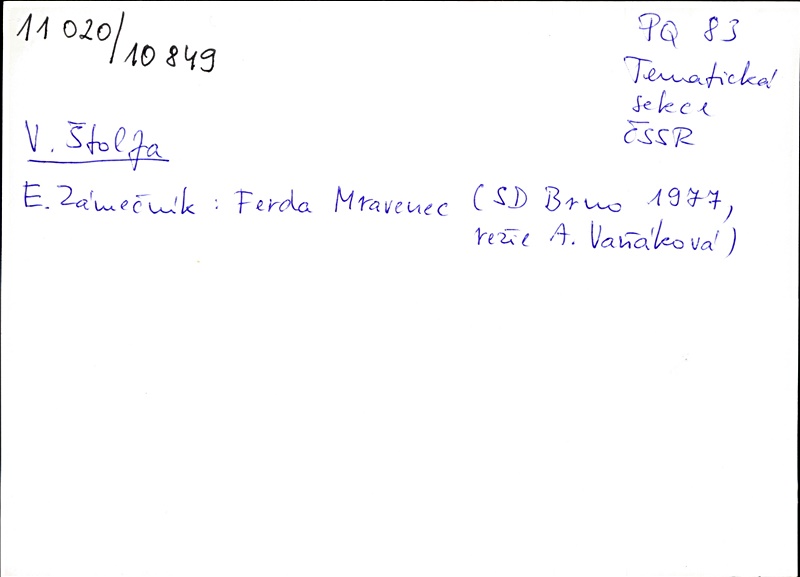 11 020/10 849
PQ 83
Tematická
sekce
ČSSR
V. Štolfa
E. Zámečník : Ferda Mravenec (SD Brno 1977,
režie A. Vaňáková)